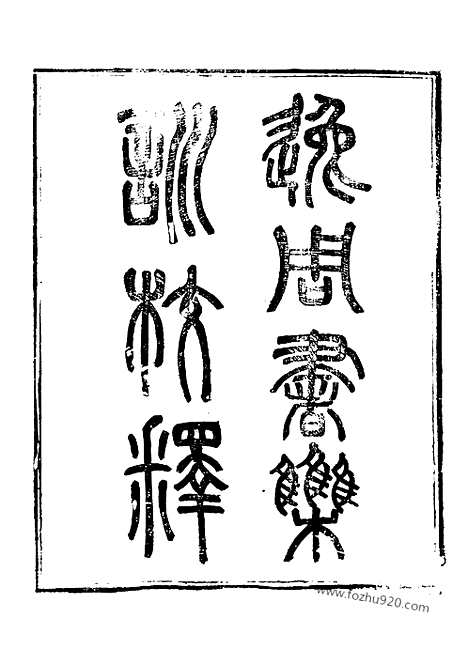 逸周書集
訓校釋
www.fozhu920.com